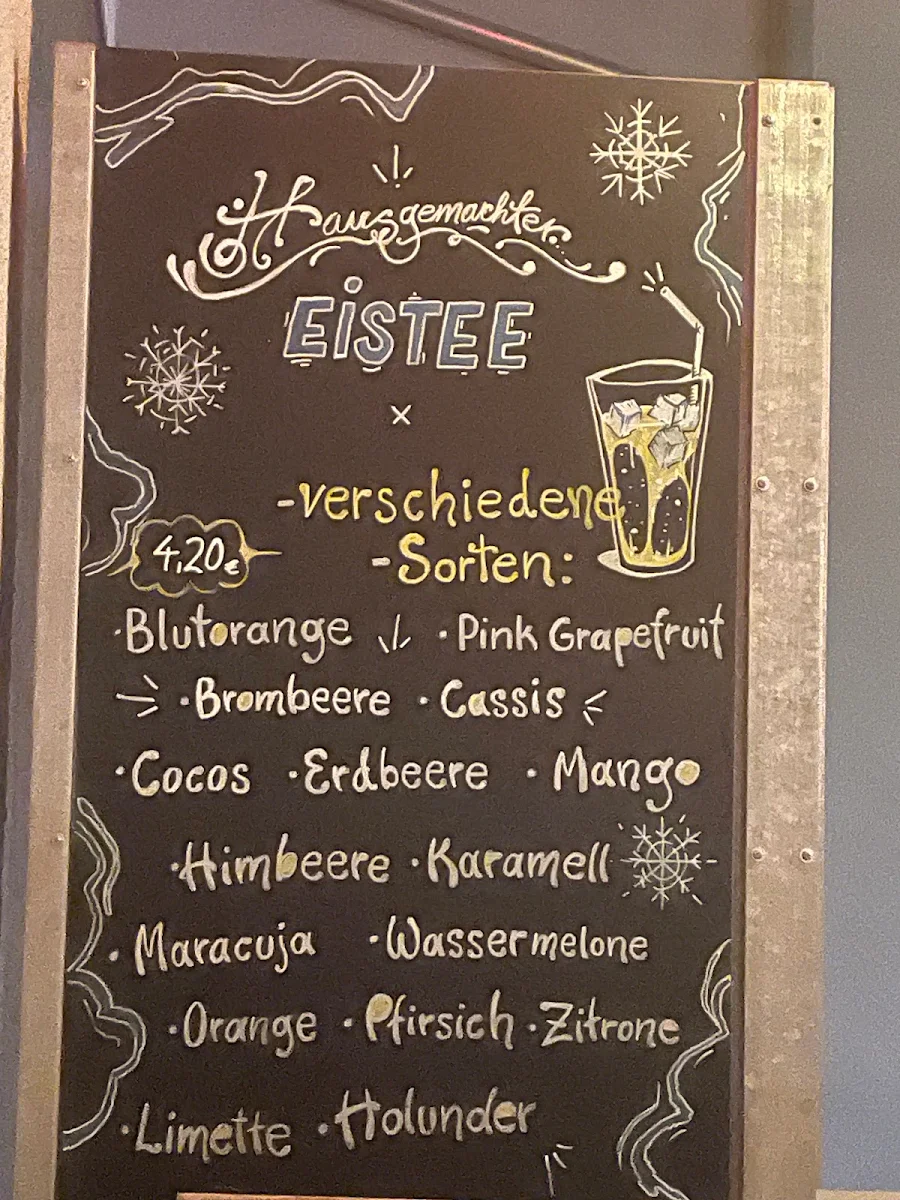 Hausgemachter
EiSTEE
x
-verschiedene
4,20€ -Sorten:
·Blutorange ·Pink Grapefruit
·Brombeere ·Cassis
·Cocos ·Erdbeere ·Mango
·Himbeere ·Karamell
·Maracuja ·Wassermelone
·Orange ·Pfirsich ·Zitrone
·Limette ·Holunder